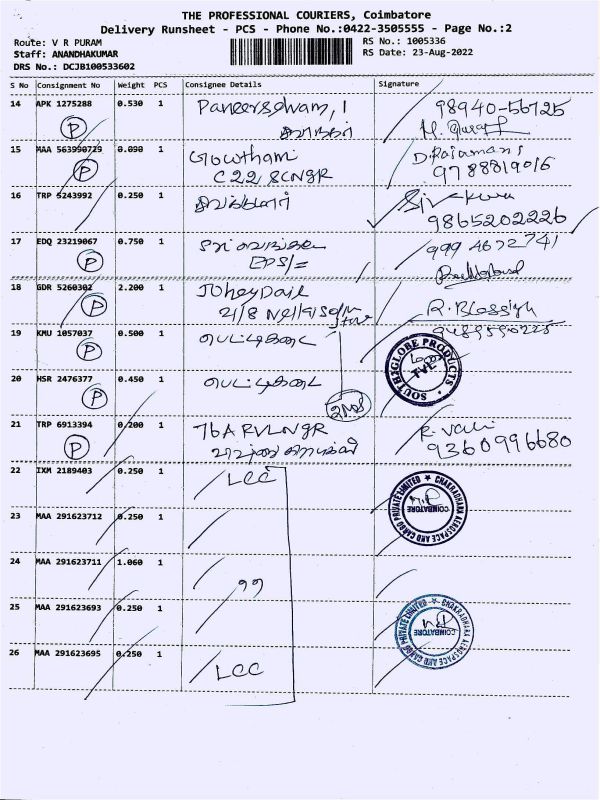 THE PROFESSIONAL COURIERS, Coimbatore
Delivery Runsheet - PCS - Phone No.:0422-3505555 - Page No.:2
Route: V R PURAM
RS No.: 1005336
Staff: ANANDHAKUMAR
RS Date: 23-Aug-2022
DRS No.: DCJB100533602
S No Consignment No Weight PCS Consignee Details Signature
14 APK 1275288 0.530 1 98940-56725
P
15 MAA 563990729 0.090 1 Gowtham D.Rajamani
P C22 SCNGR 9788819016
16 TRP 5243992 0.250 1
9865202226
17 EDQ 23219067 0.750 1 999 4672741
P EPS/=
18 GDR 5260302 2.200 1
P R.Blessigh
19 KMU 1057037 0.500 1 பெட்டிகடை
P
SOUTHGLOBE PRODUCTS
20 HSR 2476377 0.450 1 பெட்டிகடை
P 2Nos
21 TRP 6913394 0.200 1 76A RVLNGR R.Valli
P 9360996680
22 IXM 2189403 0.250 1 LCC
CHAKRADHARA AEROSPACE AND CARGO PRIVATE LIMITED
COIMBATORE
23 MAA 291623712 0.250 1
24 MAA 291623711 1.060 1 "
25 MAA 291623693 0.250 1
CHAKRADHARA AEROSPACE AND CARGO PRIVATE LIMITED
COIMBATORE
26 MAA 291623695 0.250 1 LCC